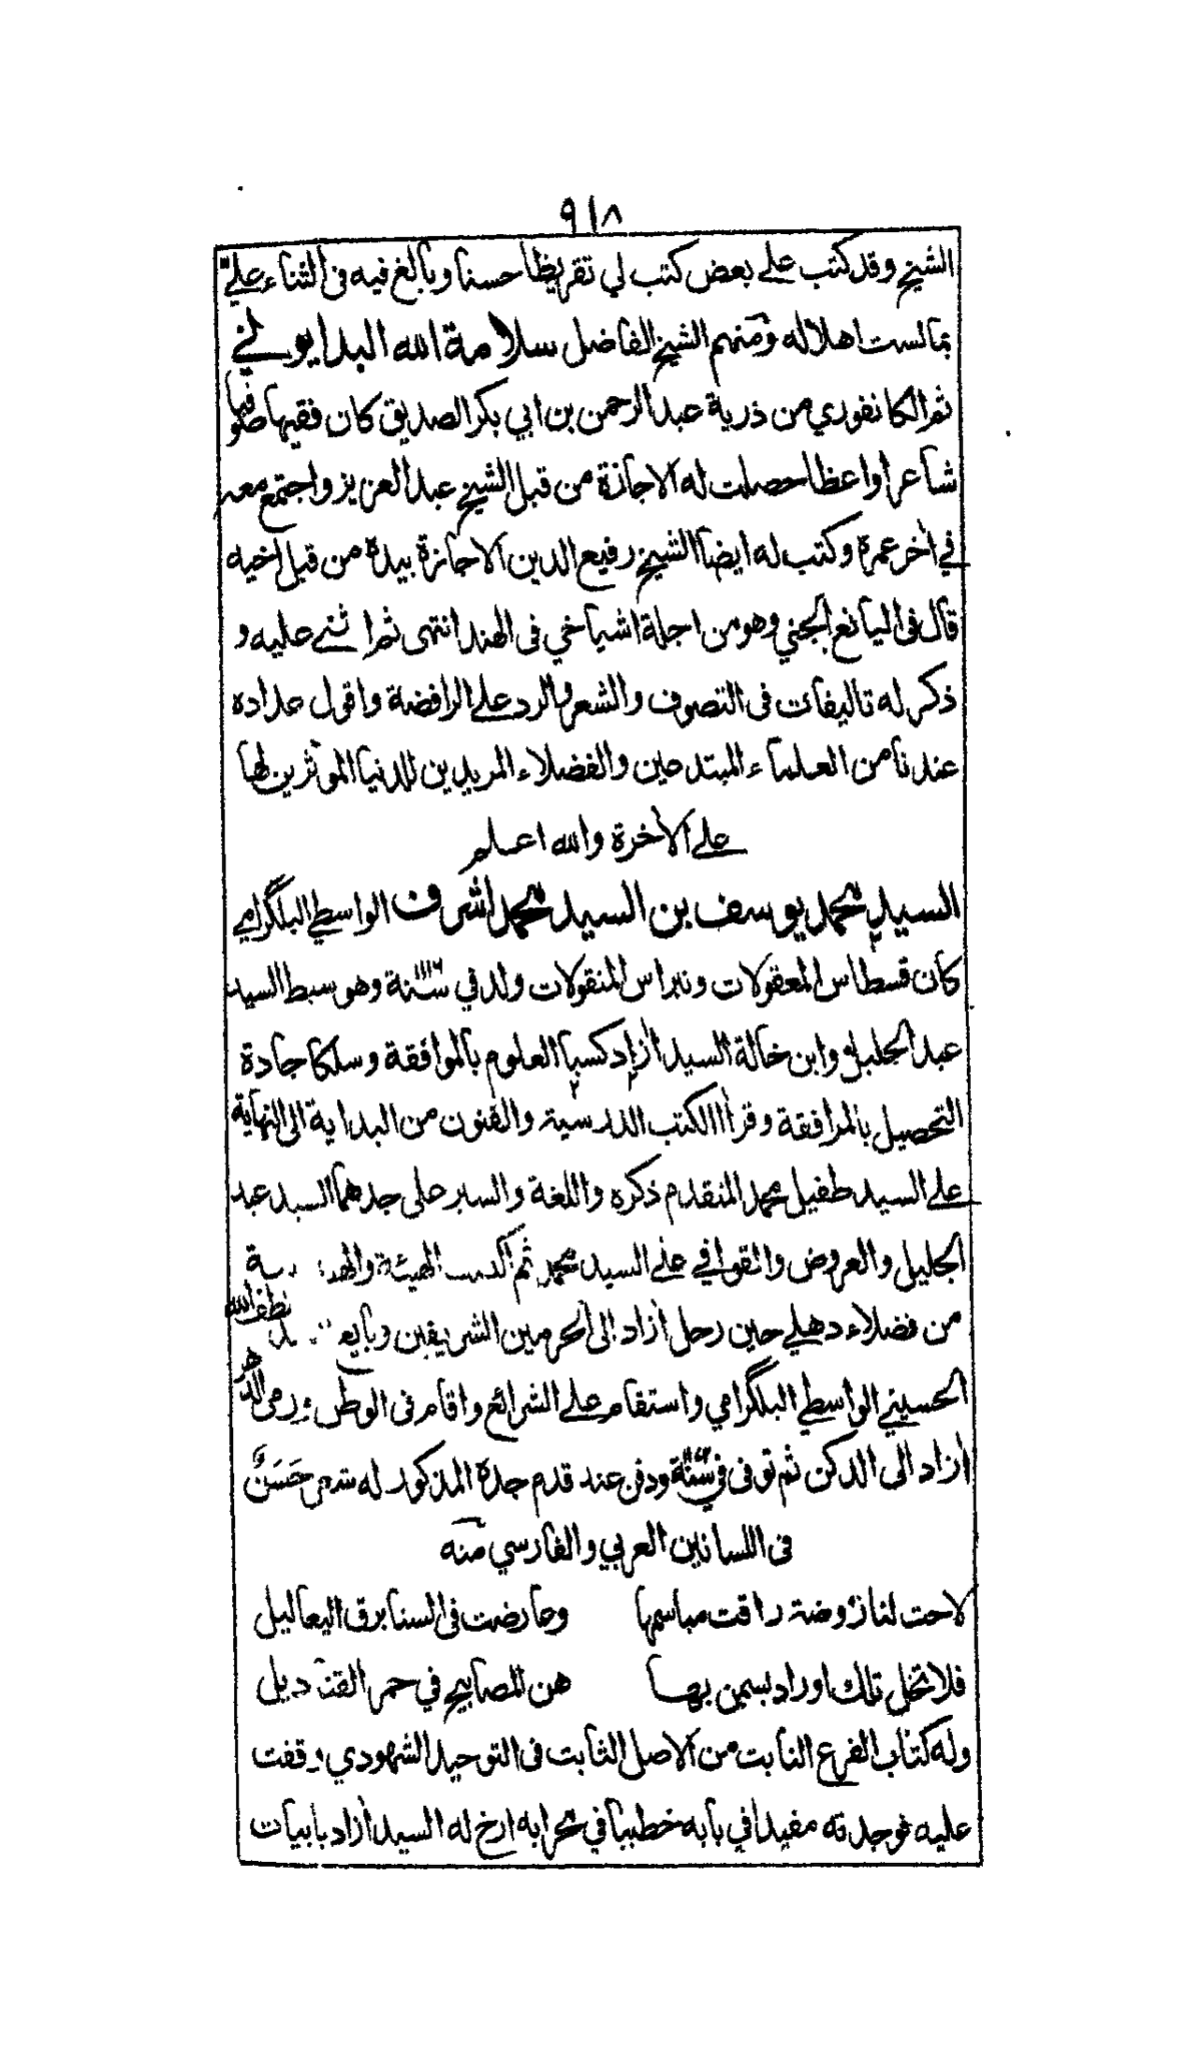 ٩١٨
الشيخ وقد كتب على بعض كتب لي تقريظا حسنا وبالغ فيه فى الثناء علىّ
بما لست اهلا له ومنهم الشيخ الفاضل سلامة الله البدايوني
ثم الكانفوري من ذرية عبد الرحمن بن ابي بكر الصديق كان فقيها صوفيا
شاعرا واعظا حصلت له الاجازة من قبل الشيخ عبد العزيز واجتمع معه
في اخر عمره وكتب له ايضا الشيخ رفيع الدين الاجازة بيده من قبل اخيه
قال فى اليانع الجني وهو من اجلة اشياخي فى الهند انتهى ثم اثنى عليه و
ذكر له تاليفات فى التصوف والشعر والرد على الرافضة واقول عداده
عندنا من العلماء المبتدعين والفضلاء المريدين للدنيا الموثرين لها
على الاخرة والله اعلم
السيد محمد يوسف بن السيد محمد اشرف الواسطي البلگرامي
كان قسطاس المعقولات ونبراس المنقولات ولد في سنة ١١١٦ وهو سبط السيد
عبد الجليل وابن خالة السيد ازاد كسبا العلوم بالموافقة وسلكا جادة
التحصيل بالمرافقة وقرأا الكتب الدرسية والفنون من البداية الى النهاية
على السيد طفيل محمد المتقدم ذكره واللغة والسير على جدهما السيد عبد
الجليل والعروض والقوافي على السيد محمد ثم الهيئة
من فضلاء دهلي حين رحل ازاد الى الحرمين الشريفين وبايع لطف الله
الحسيني الواسطي البلگرامي واستقام على الشرائع واقام فى الوطن ورمى الدهر
ازاد الى الدكن ثم توفى في سنة ودفن عند قدم جده المذكور له شعر حَسَنٌ
فى اللسانين العربي والفارسي منه
لاحت لنا روضة راقت مباسمها وعارضت فى السنا برق اليعاليل
فلا تخل تلك اوراد بسمن بها هن المصابيح في حمر القناديل
وله كتاب الفرع النابت من الاصل الثابت فى التوحيد الشهودي وقفت
عليه فوجدته مفيدا في بابه خطيبا في محرابه ارخ له السيد ازاد بابيات